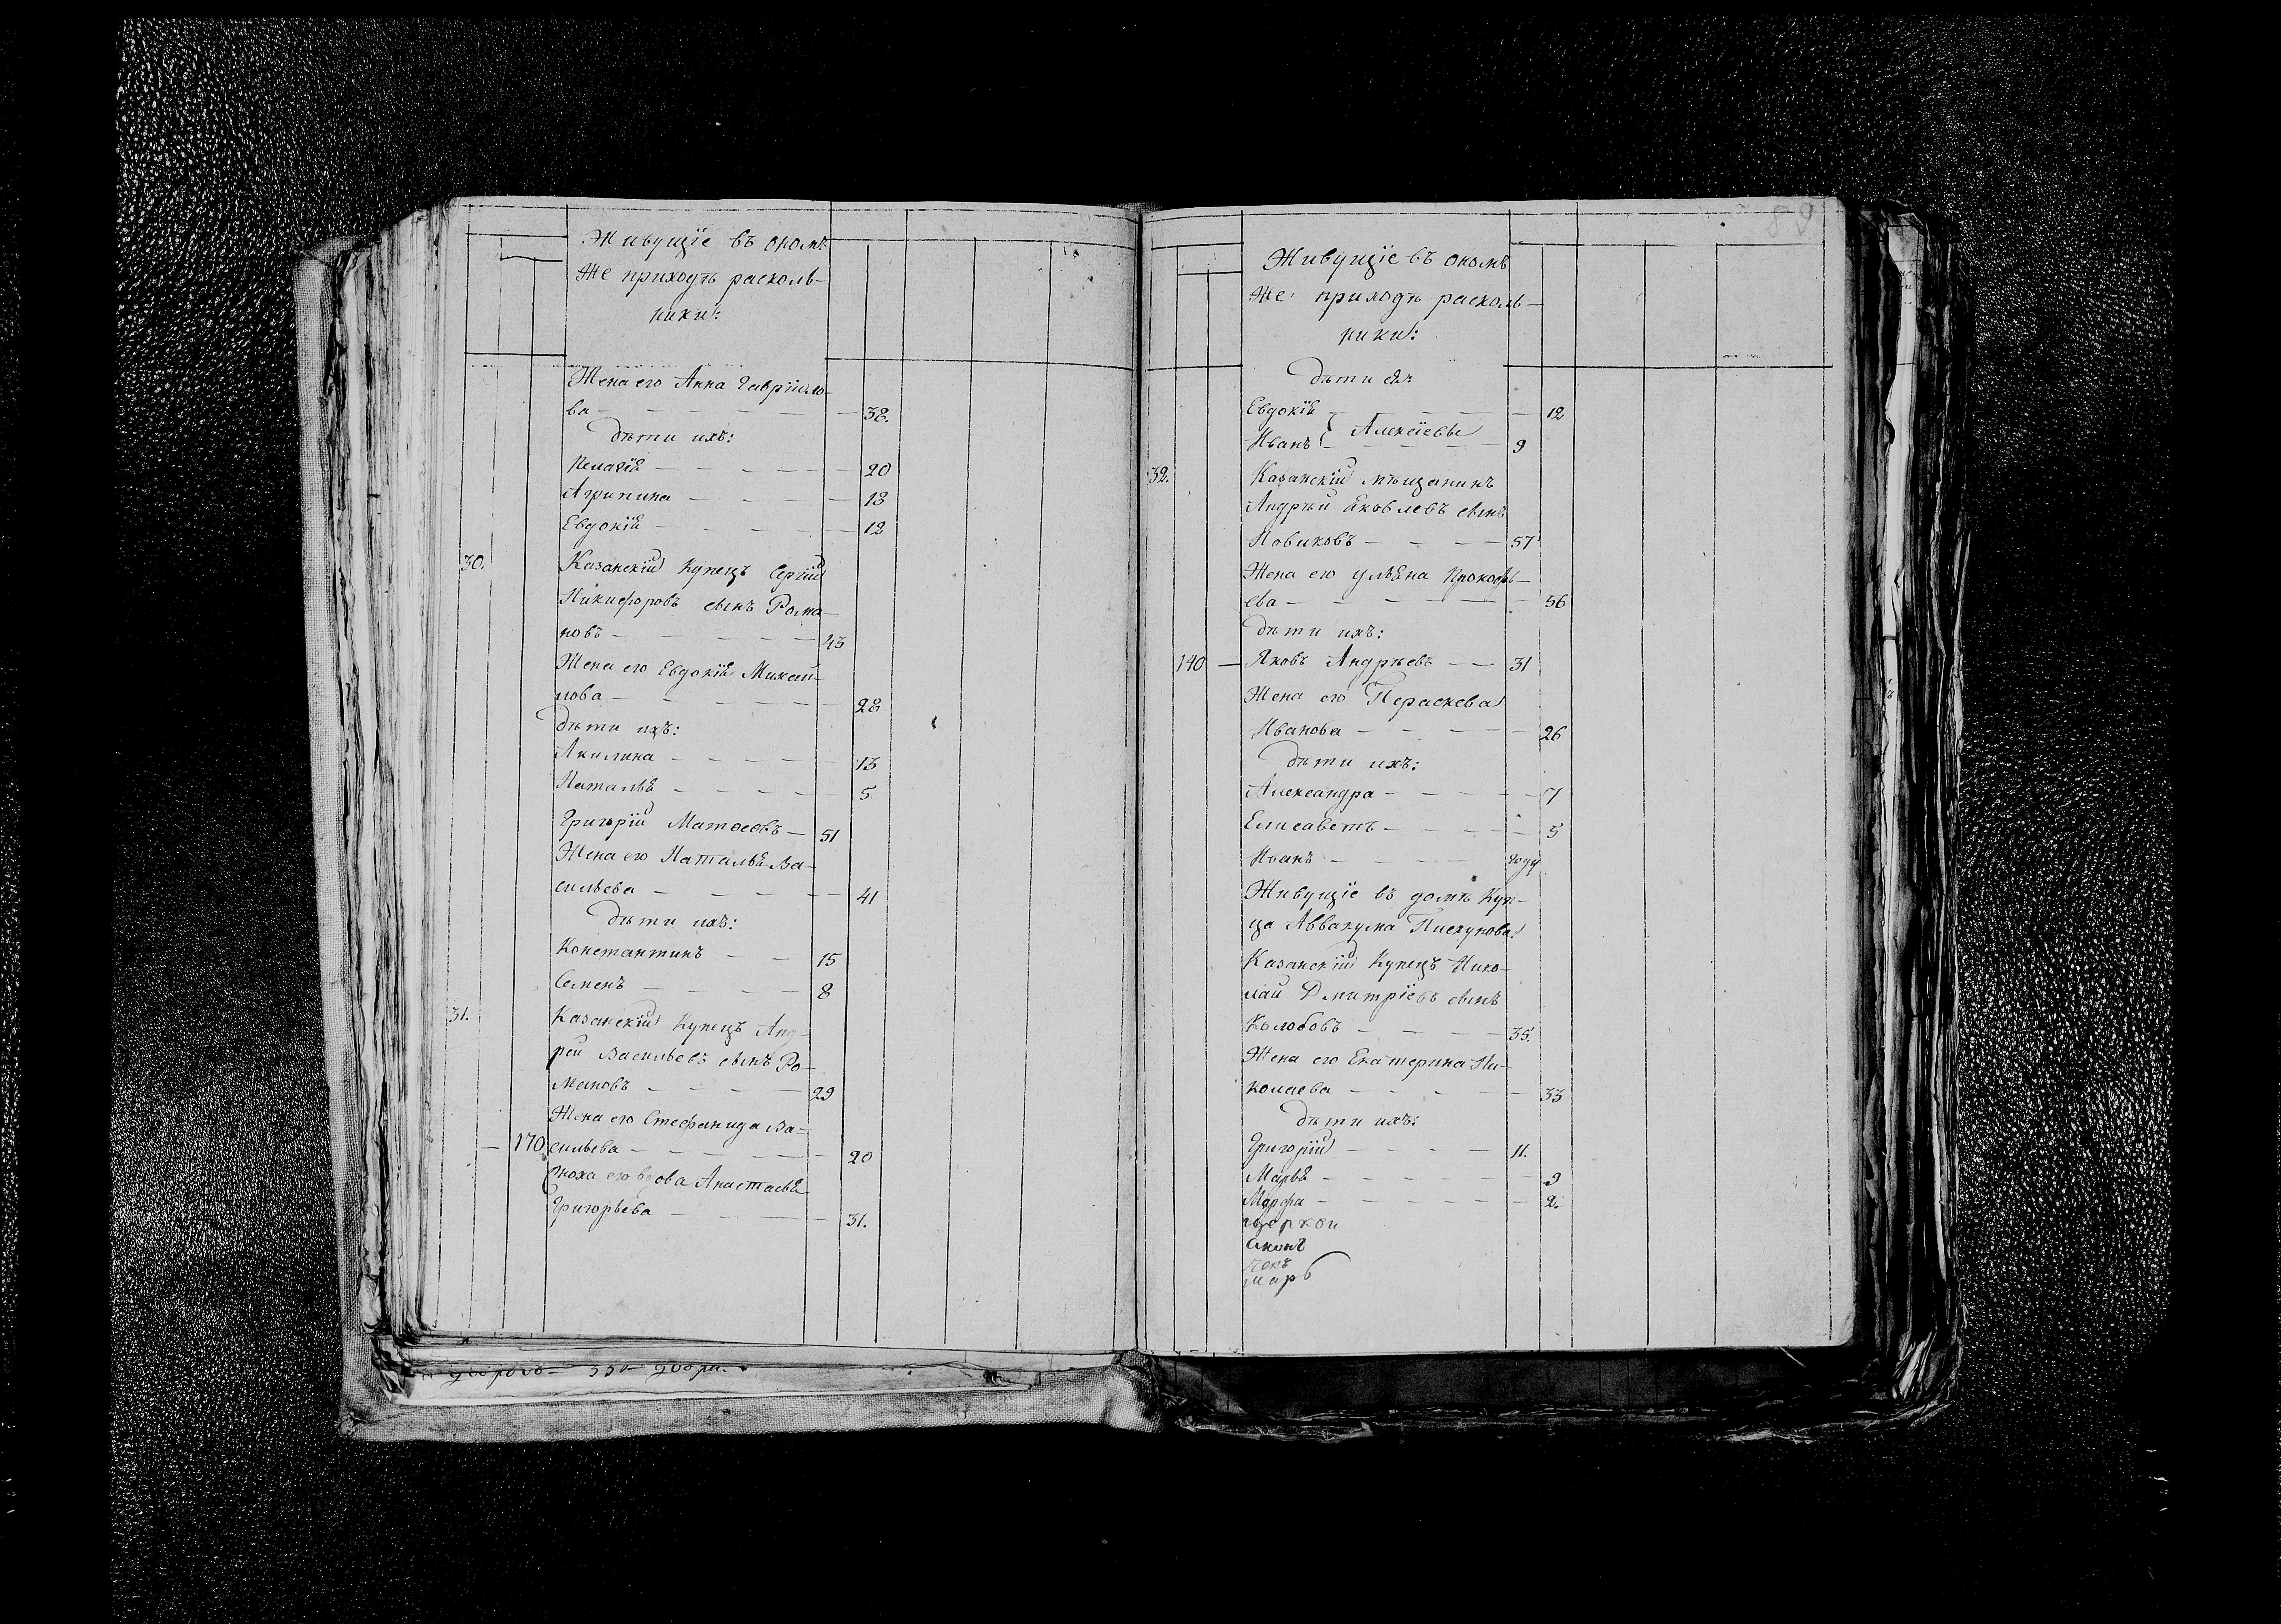 Живущіе въ ономъ
же приходѣ расколь-
ники:
Жена его Анна Гавриило-
ва — 38.
дѣти ихъ:
Пелагія — 20
Агрипина — 13
Евдокія — 12
30. Казанскій Купецъ Сергій
Никифоровъ сынъ Рома-
новъ — 43
Жена его Евдокія Михай-
лова — 28
дѣти ихъ:
Акилина — 13
Наталья — 5
Григорій Матвеевъ — 51
Жена его Наталья Ва-
сильева — 41
дѣти ихъ:
Константинъ — 15
Семенъ — 8
31. Казанскій Купецъ Анд-
рей Васильевъ сынъ Ро-
мановъ — 29
Жена его Стефанида Ва-
— 170 сильева — 20
Сноха его вдова Анастасья
Григорьева — 31.
89
Живущіе въ ономъ
же приходѣ расколь-
ники:
дѣти ея:
Евдокія — 12
Иванъ } Алексіевы — 9
32. Казанскій мѣщанинъ
Андрей Яковлевъ сынъ
Новиковъ — 57
Жена его Ульяна Прокофь-
ева — 56
дѣти ихъ:
140 — Яковъ Андрѣевъ — 31
Жена его Пераскева
Иванова — 26
дѣти ихъ:
Александра — 7
Елисаветъ — 5
Иванъ — году
Живущіе въ домѣ Куп-
ца Аввакума Пискунова:
Казанскій Купецъ Нико-
лай Дмитріевъ сынъ
Колобовъ — 35.
Жена его Екатерина Ни-
колаева — 33
дѣти ихъ:
Григорій — 11.
Марья — 9
Марфа — 2.